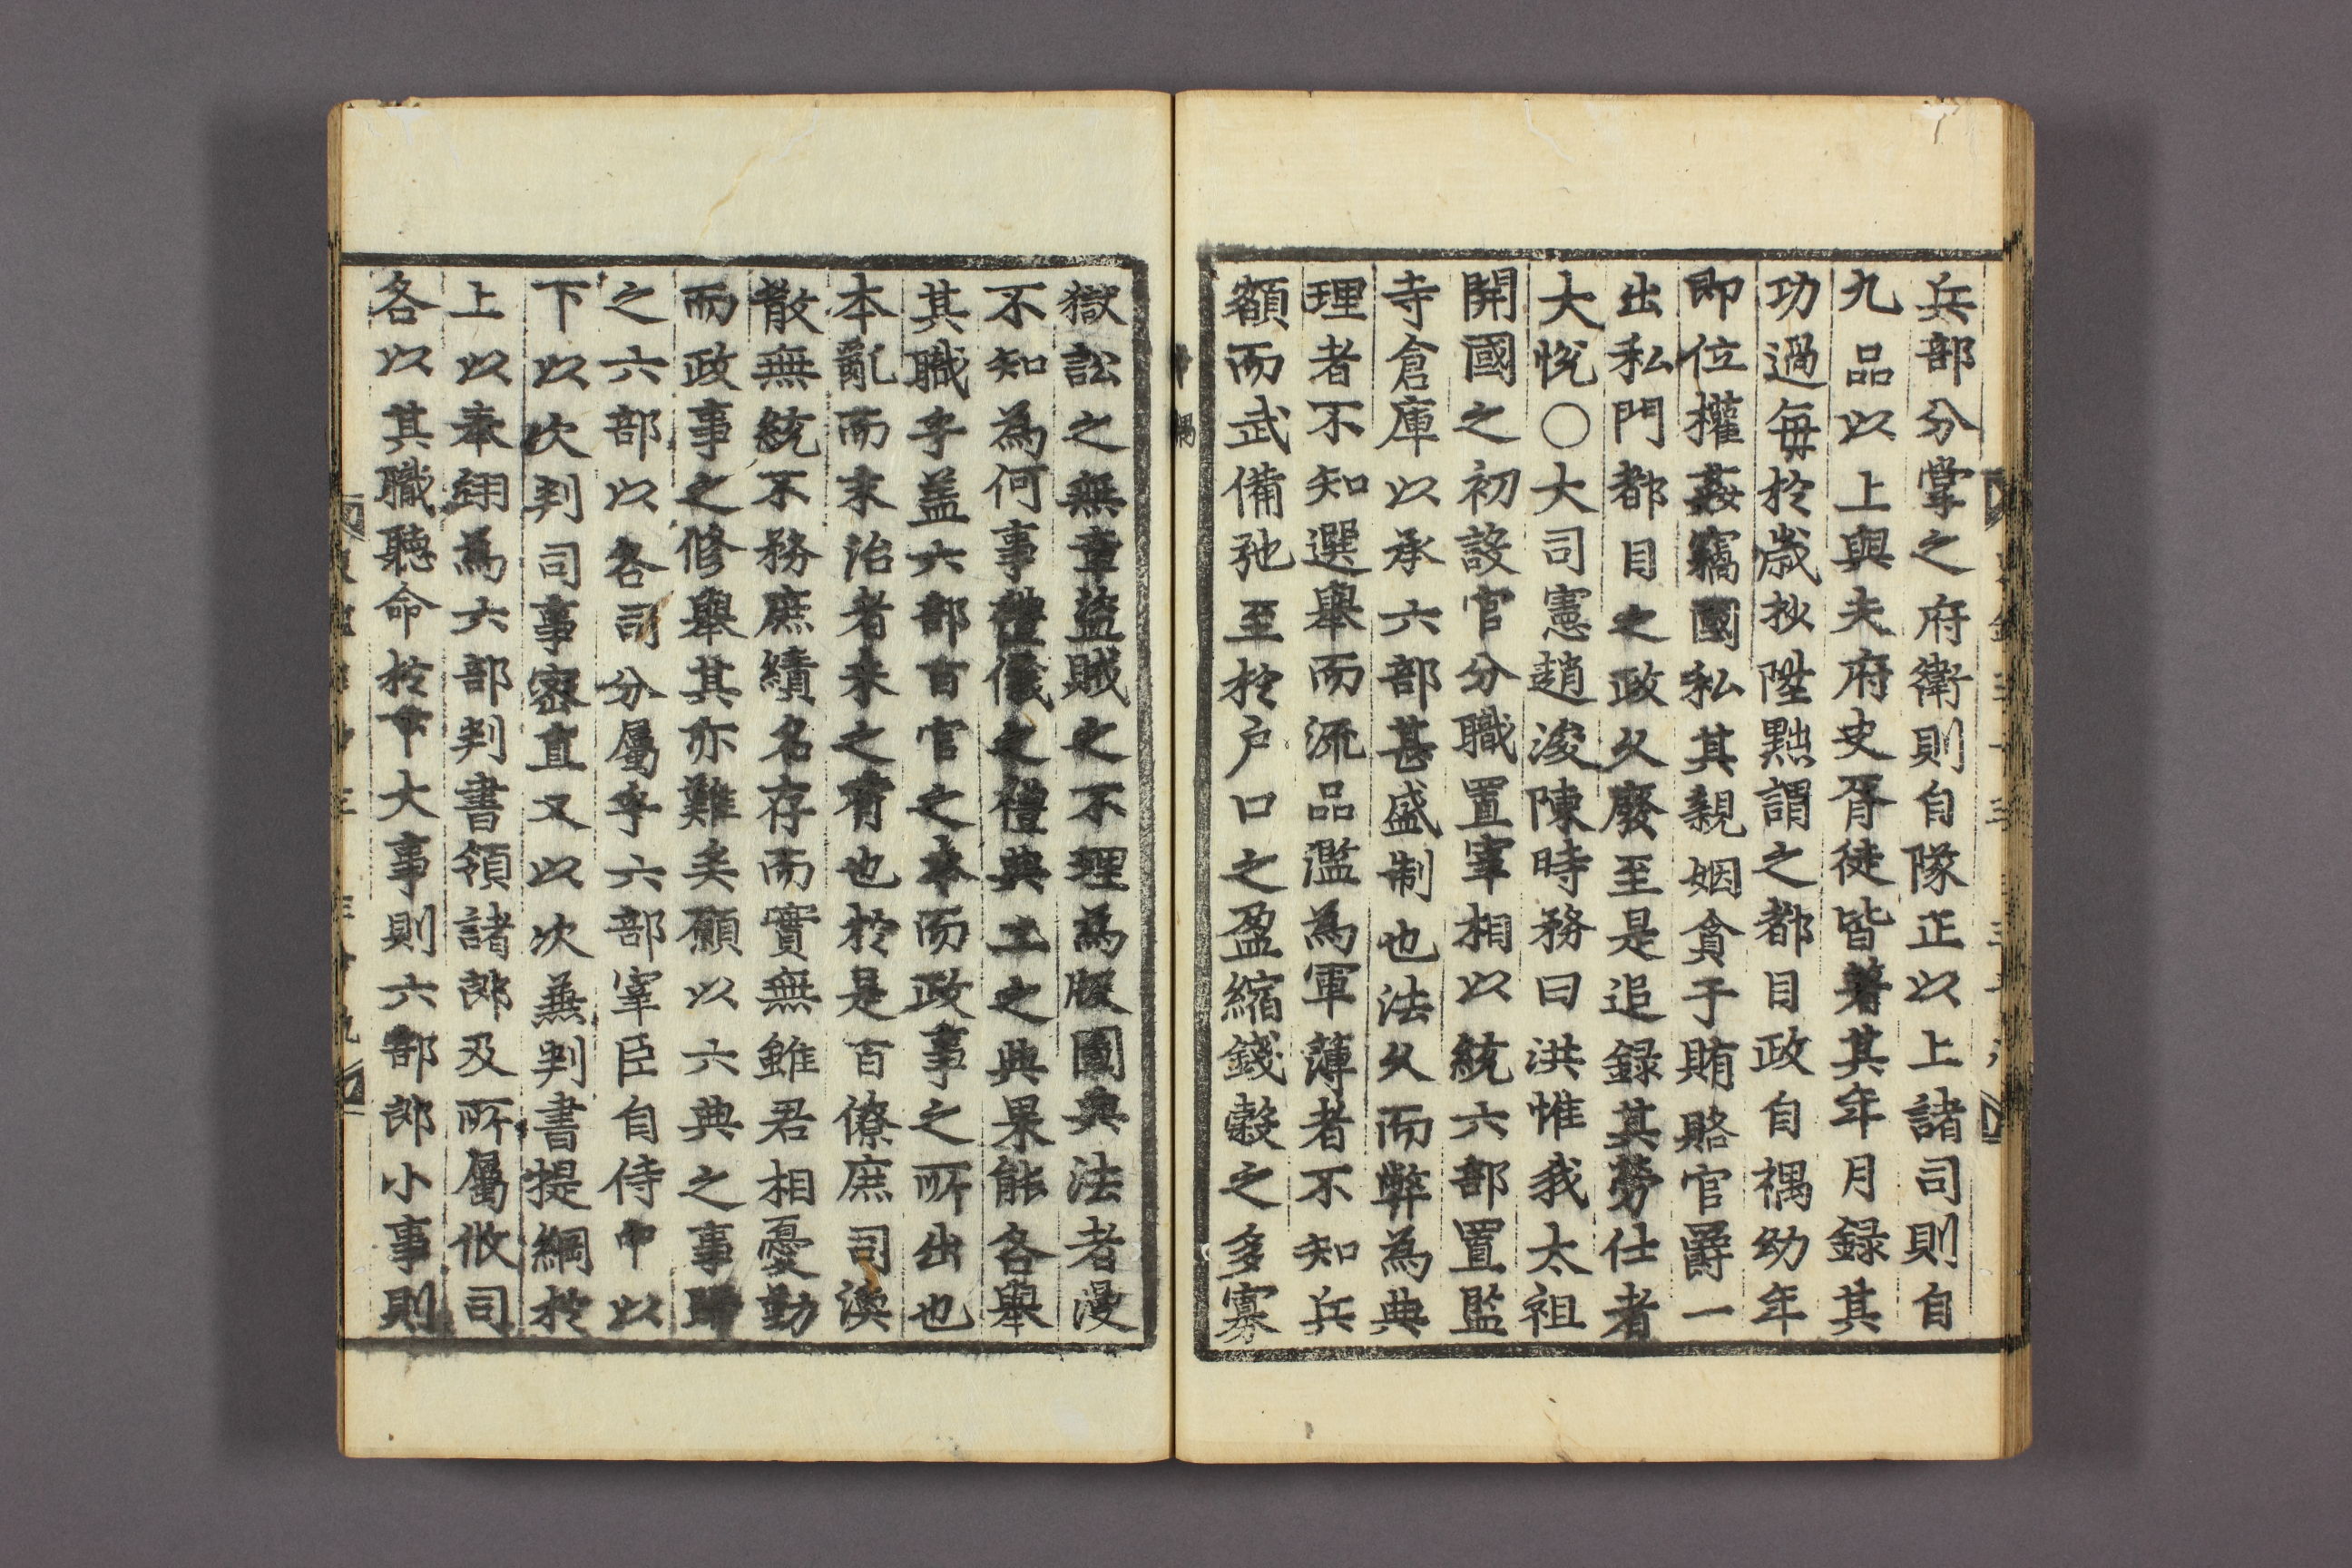 兵部分掌之府衛則自隊正以上諸司則自
九品以上與夫府史胥徒皆著其年月録其
功過每於歲抄陞黜謂之都目政自禑幼年
即位權姦竊國私其親姻貪于賄賂官爵一
出私門都目之政久廢至是追録其勞仕者
大悅○大司憲趙浚陳時務曰洪惟我太祖
開國之初設官分職置宰相以統六部置監
寺倉庫以承六部甚盛制也法久而弊為典
理者不知選舉而流品濫為軍薄者不知兵
額而武備弛至於户口之盈縮錢穀之多寡
禑
獄訟之無章盜賊之不理為版圖典法者漫
不知為何事禮儀之禮典工之典果能各舉
其職乎盖六部百官之本而政事之所出也
本亂而末治者未之有也於是百僚庶司渙
散無統不務庶績名存而實無雖君相憂勤
而政事之修舉其亦難矣願以六典之事歸
之六部以各司分屬乎六部宰臣自侍中以
下以次判司事密直又以次兼判書提綱於
上以奉翊為六部判書領諸郎及所屬攸司
各以其職聽命於下大事則六部郎小事則